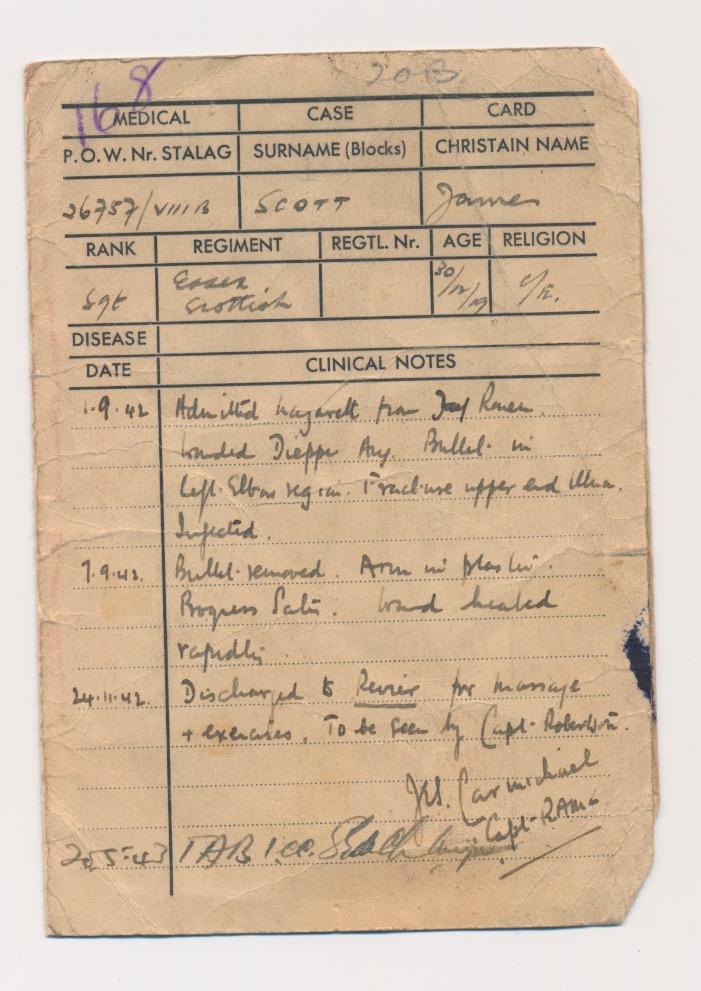 168
20B
MEDICAL CASE CARD
P.O.W. Nr. STALAG SURNAME (Blocks) CHRISTAIN NAME
26757/VIIIB SCOTT James
RANK REGIMENT REGTL. Nr. AGE RELIGION
Sgt Essex Scottish 30/12/19 C/E.
DISEASE
DATE CLINICAL NOTES
1.9.42 Admitted Lazarett from Rouen.
Wounded Dieppe Aug. Bullet in
Left Elbow region. Fracture upper end Ulna.
Infected.
7.9.42. Bullet removed. Arm in plaster.
Progress Satis. Wound healed
rapidly.
24.11.42. Discharged to Revier for massage
+ exercises. To be seen by Capt. Robertson.
J.S. Carmichael
Capt. RAMC
20.5.43 TAB 1 cc.